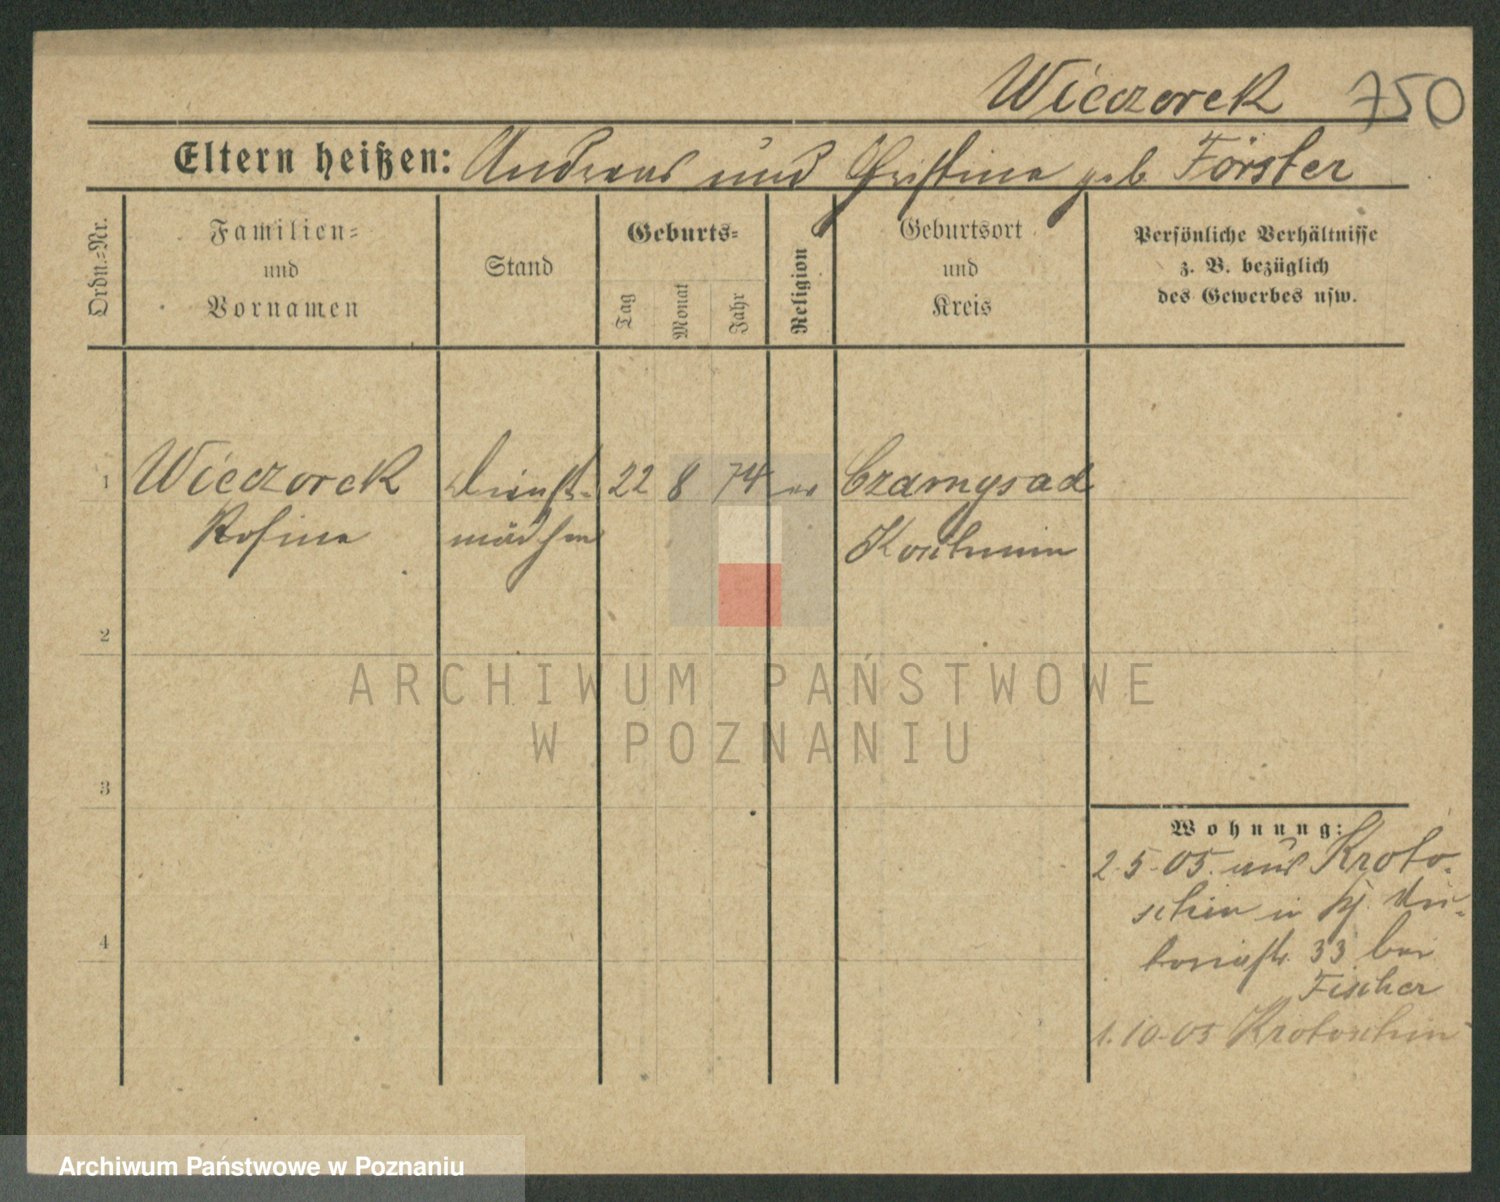 Wieczorek 750
Eltern heißen: Andreas und Christina geb. Förster
Ordn.-Nr.
Familien-
und
Vornamen
Stand
Geburts-
Tag
Monat
Jahr
Religion
Geburtsort
und
Kreis
Persönliche Verhältnisse
z. B. bezüglich
des Gewerbes usw.
1 Wieczorek Dienst- 22 8 74 ev Czarnysad
Rosina mädchen Koschmin
2
3
4
Wohnung:
2.5.05. aus Kroto-
schin in Hj. Vik-
toriastr. 33 bei
Fischer
1.10.05 Krotoschin
ARCHIWUM PAŃSTWOWE
W POZNANIU
Archiwum Państwowe w Poznaniu